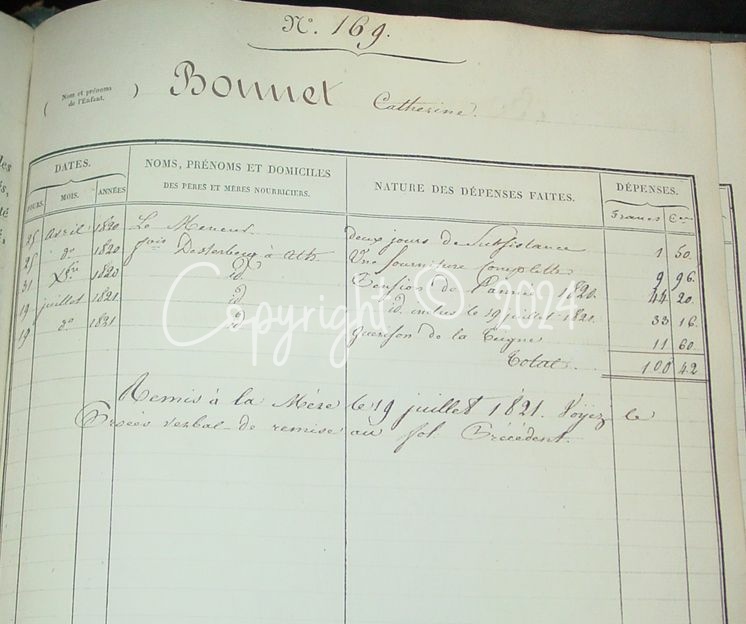 N.º 169.
Nom et prénoms de l'Enfant.
Bonnet Catherine.
DATES.
NOMS, PRÉNOMS ET DOMICILES DES PERES ET MÈRES NOURRICIERS.
NATURE DES DÉPENSES FAITES.
DÉPENSES.
JOURS. MOIS. ANNÉES
Francs Cen
25 Avril 1820 Le Meneur deux jours de Subsistance 1 50.
25 do 1820 à Ath Une fourniture complette 9 96.
31 Xbre 1820 id Pension de l'année 1820. 44 20.
19 juillet 1821 id id. inclus le 19 juillet 1821. 33 16.
19 do 1821 id Guérison de la Teigne 11 60.
Total 100 42
Remis à la Mére le 19 juillet 1821. Voyez le
Procès verbal de remise au fol Précédent.
Copyright © 2024